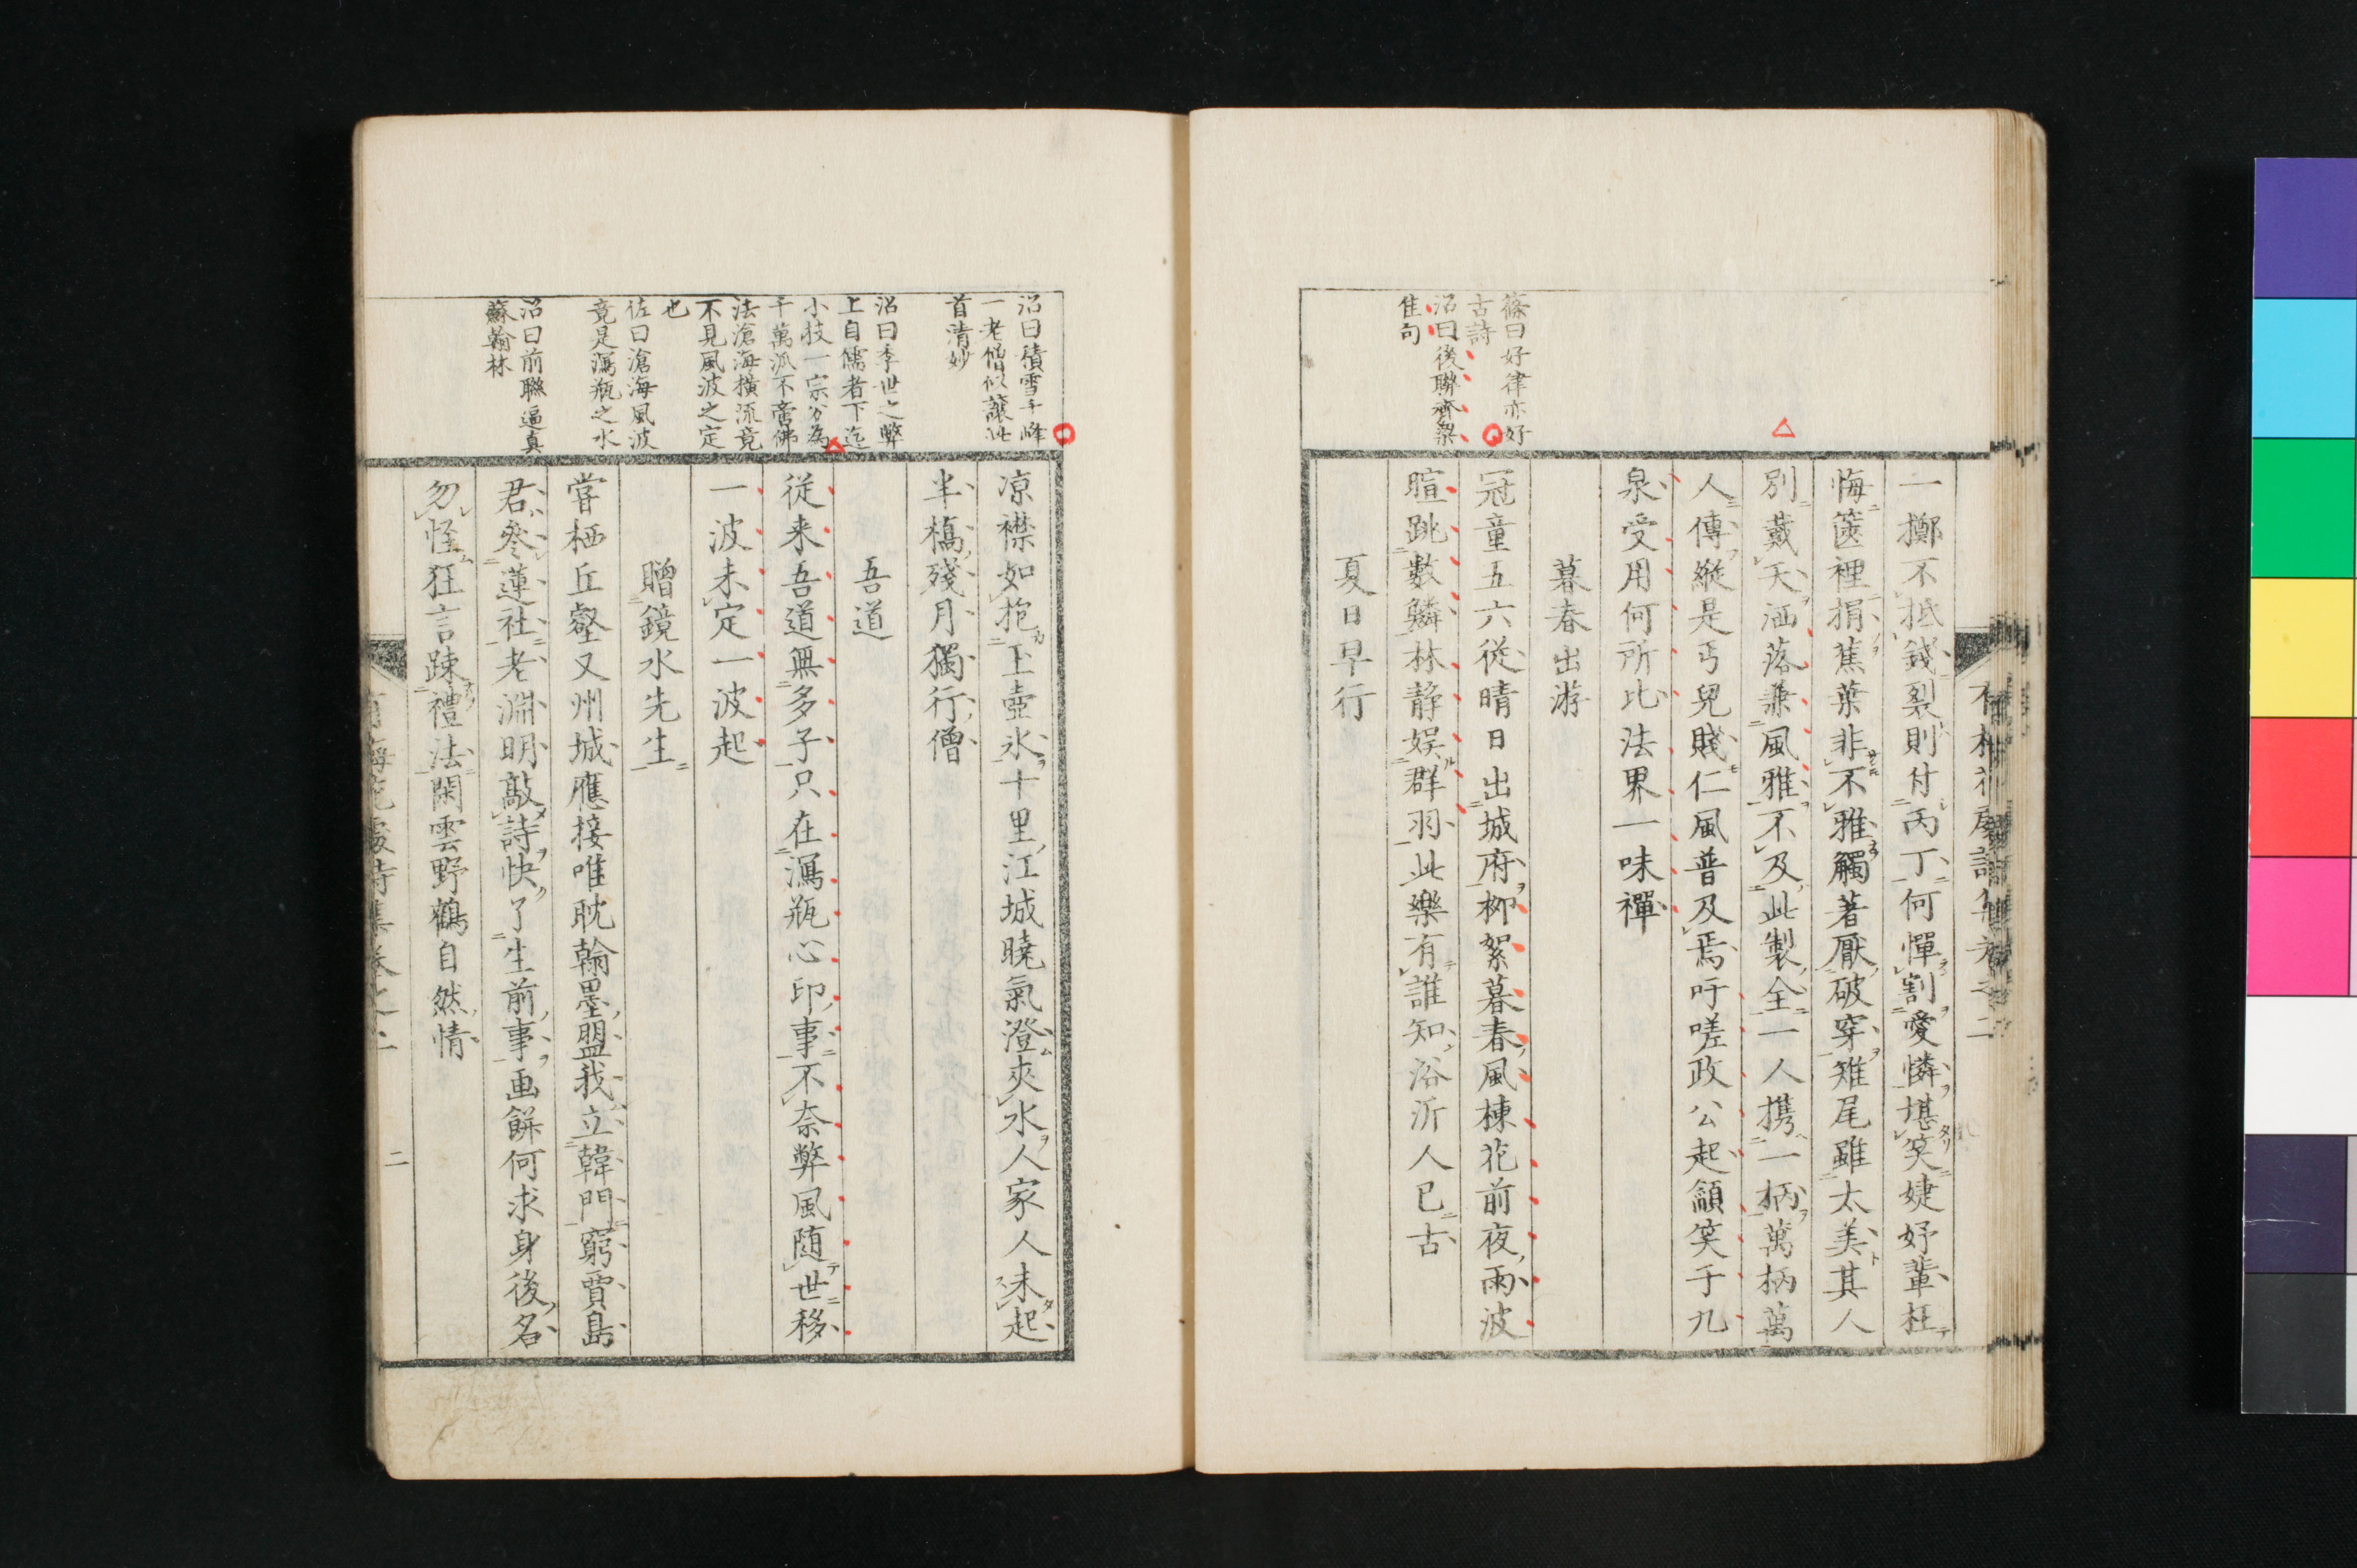 篠曰好律亦好
古詩
沼曰後聯齊梁
隹句
一擲不抵錢裂則付丙丁何憚割愛憐堪笑婕妤輩枉
悔篋裡捐蕉葉非不雅觸著厭破穿雉尾雖太美其人
別戴天洒落兼風雅不及此製全一人携一柄萬柄萬
人傳縱是丐兒賤仁風普及焉吁嗟政公起額笑于九
泉受用何所比法界一味禪
暮春出游
冠童五六從晴日出城府柳絮暮春風楝花前夜雨波
暄跳數鱗林静娯群羽此樂有誰知浴沂人已古
夏日早行
沼曰積雪千峰
一老僧似讓此
首清妙
沼曰季世之弊
上自儒者下迄
小技一宗分為
千萬派不啻佛
法滄海横流竟
不見風波之定
也
佐曰滄海風波
竟是瀉瓶之水
沼曰前聯逼真
蘇翰林
凉襟如抱玉壺氷十里江城曉氣澄夾水人家人未起
半橋殘月獨行僧
吾道
従来吾道無多子只在瀉瓶心印事不奈弊風随世移
一波未定一波起
贈鏡水先生
嘗栖丘壑又州城應接唯耽翰墨盟我立韓門窮賈島
君參蓮社老淵明敲詩快了生前事画餅何求身後名
勿怪狂言踈禮法閑雲野鶴自然情
二